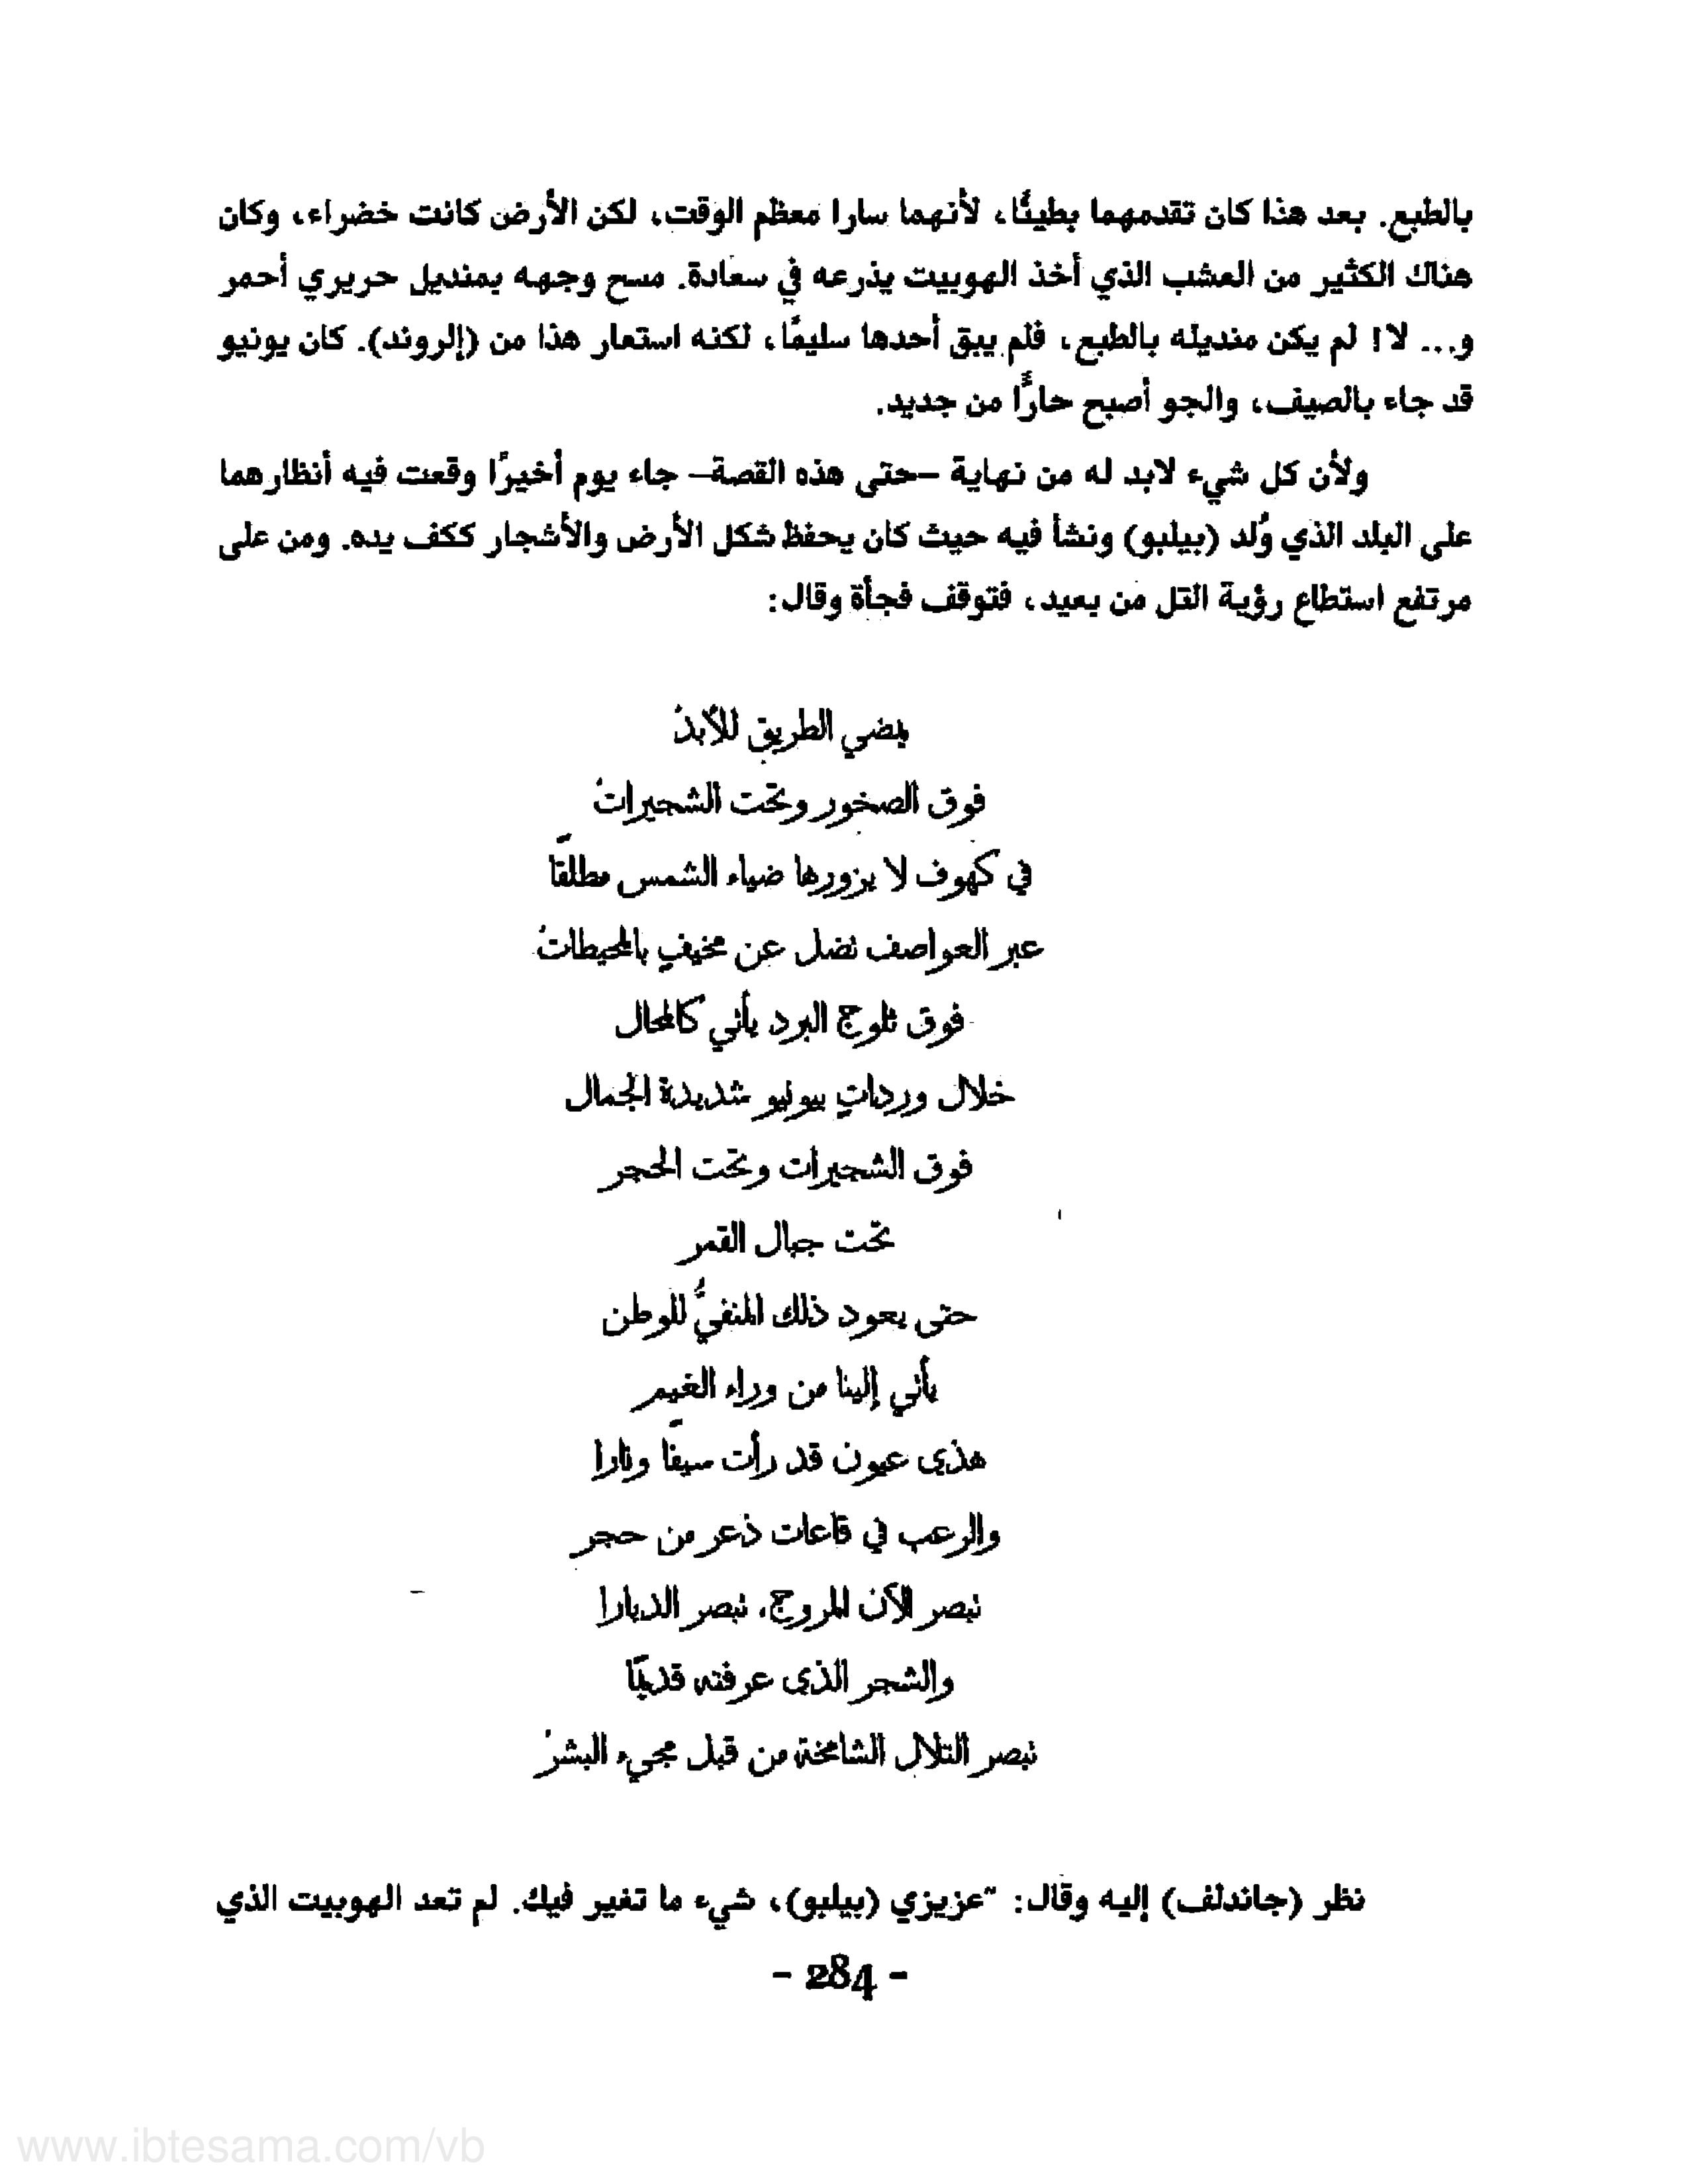 بالطبع. بعد هذا كان تقدمهما بطيئًا، لأنهما سارا معظم الوقت، لكن الأرض كانت خضراء، وكان
هناك الكثير من العشب الذي أخذ الهوبيت يذرعه في سعادة. مسح وجهه بمنديل حريري أحمر
و... لا! لم يكن منديله بالطبع، فلم يبق أحدها سليمًا، لكنه استعار هذا من (إلروند). كان يونيو
قد جاء بالصيف، والجو أصبح حارًّا من جديد.
ولأن كل شيء لابد له من نهاية –حتى هذه القصة– جاء يوم أخيرًا وقعت فيه أنظارهما
على البلد الذي وُلد (بيلبو) ونشأ فيه حيث كان يحفظ شكل الأرض والأشجار ككف يده. ومن على
مرتفع استطاع رؤية التل من بعيد، فتوقف فجأة وقال:
يمضي الطريق للأبدْ
فوق الصخور وتحت الشجيراتْ
في كهوف لا يزورها ضياء الشمس مطلقًا
عبر العواصف نضل عن مخيفٍ بالمحيطاتْ
فوق ثلوج البرد يأتي كالمحال
خلال ورداتٍ بيونيو شديدة الجمال
فوق الشجيرات وتحت الحجر
تحت جبال القمر
حتى يعود ذلك المنفيُّ للوطن
يأتي إلينا من وراء الغيم
هذى عيون قد رأت سيفًا ونارا
والرعب في قاعات ذعر من حجر
تبصر الآن المروج، تبصر الديارا
والشجر الذى عرفته قديمًا
تبصر التلال الشامخة من قبل مجيء البشرْ
نظر (جاندلف) إليه وقال: "عزيزي (بيلبو)، شيء ما تغير فيك. لم تعد الهوبيت الذي
- 284 -
www.ibtesama.com/vb